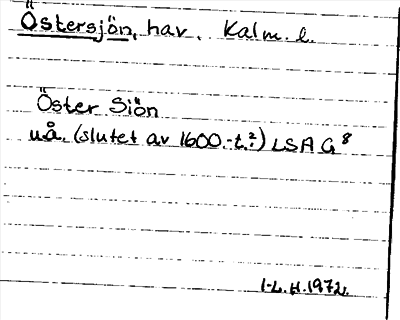 Östersjön, hav. Kalm. l.
Öster Siön
u.å. (slutet av 1600.-t.?) LSA G 8
I-L. H. 1972.